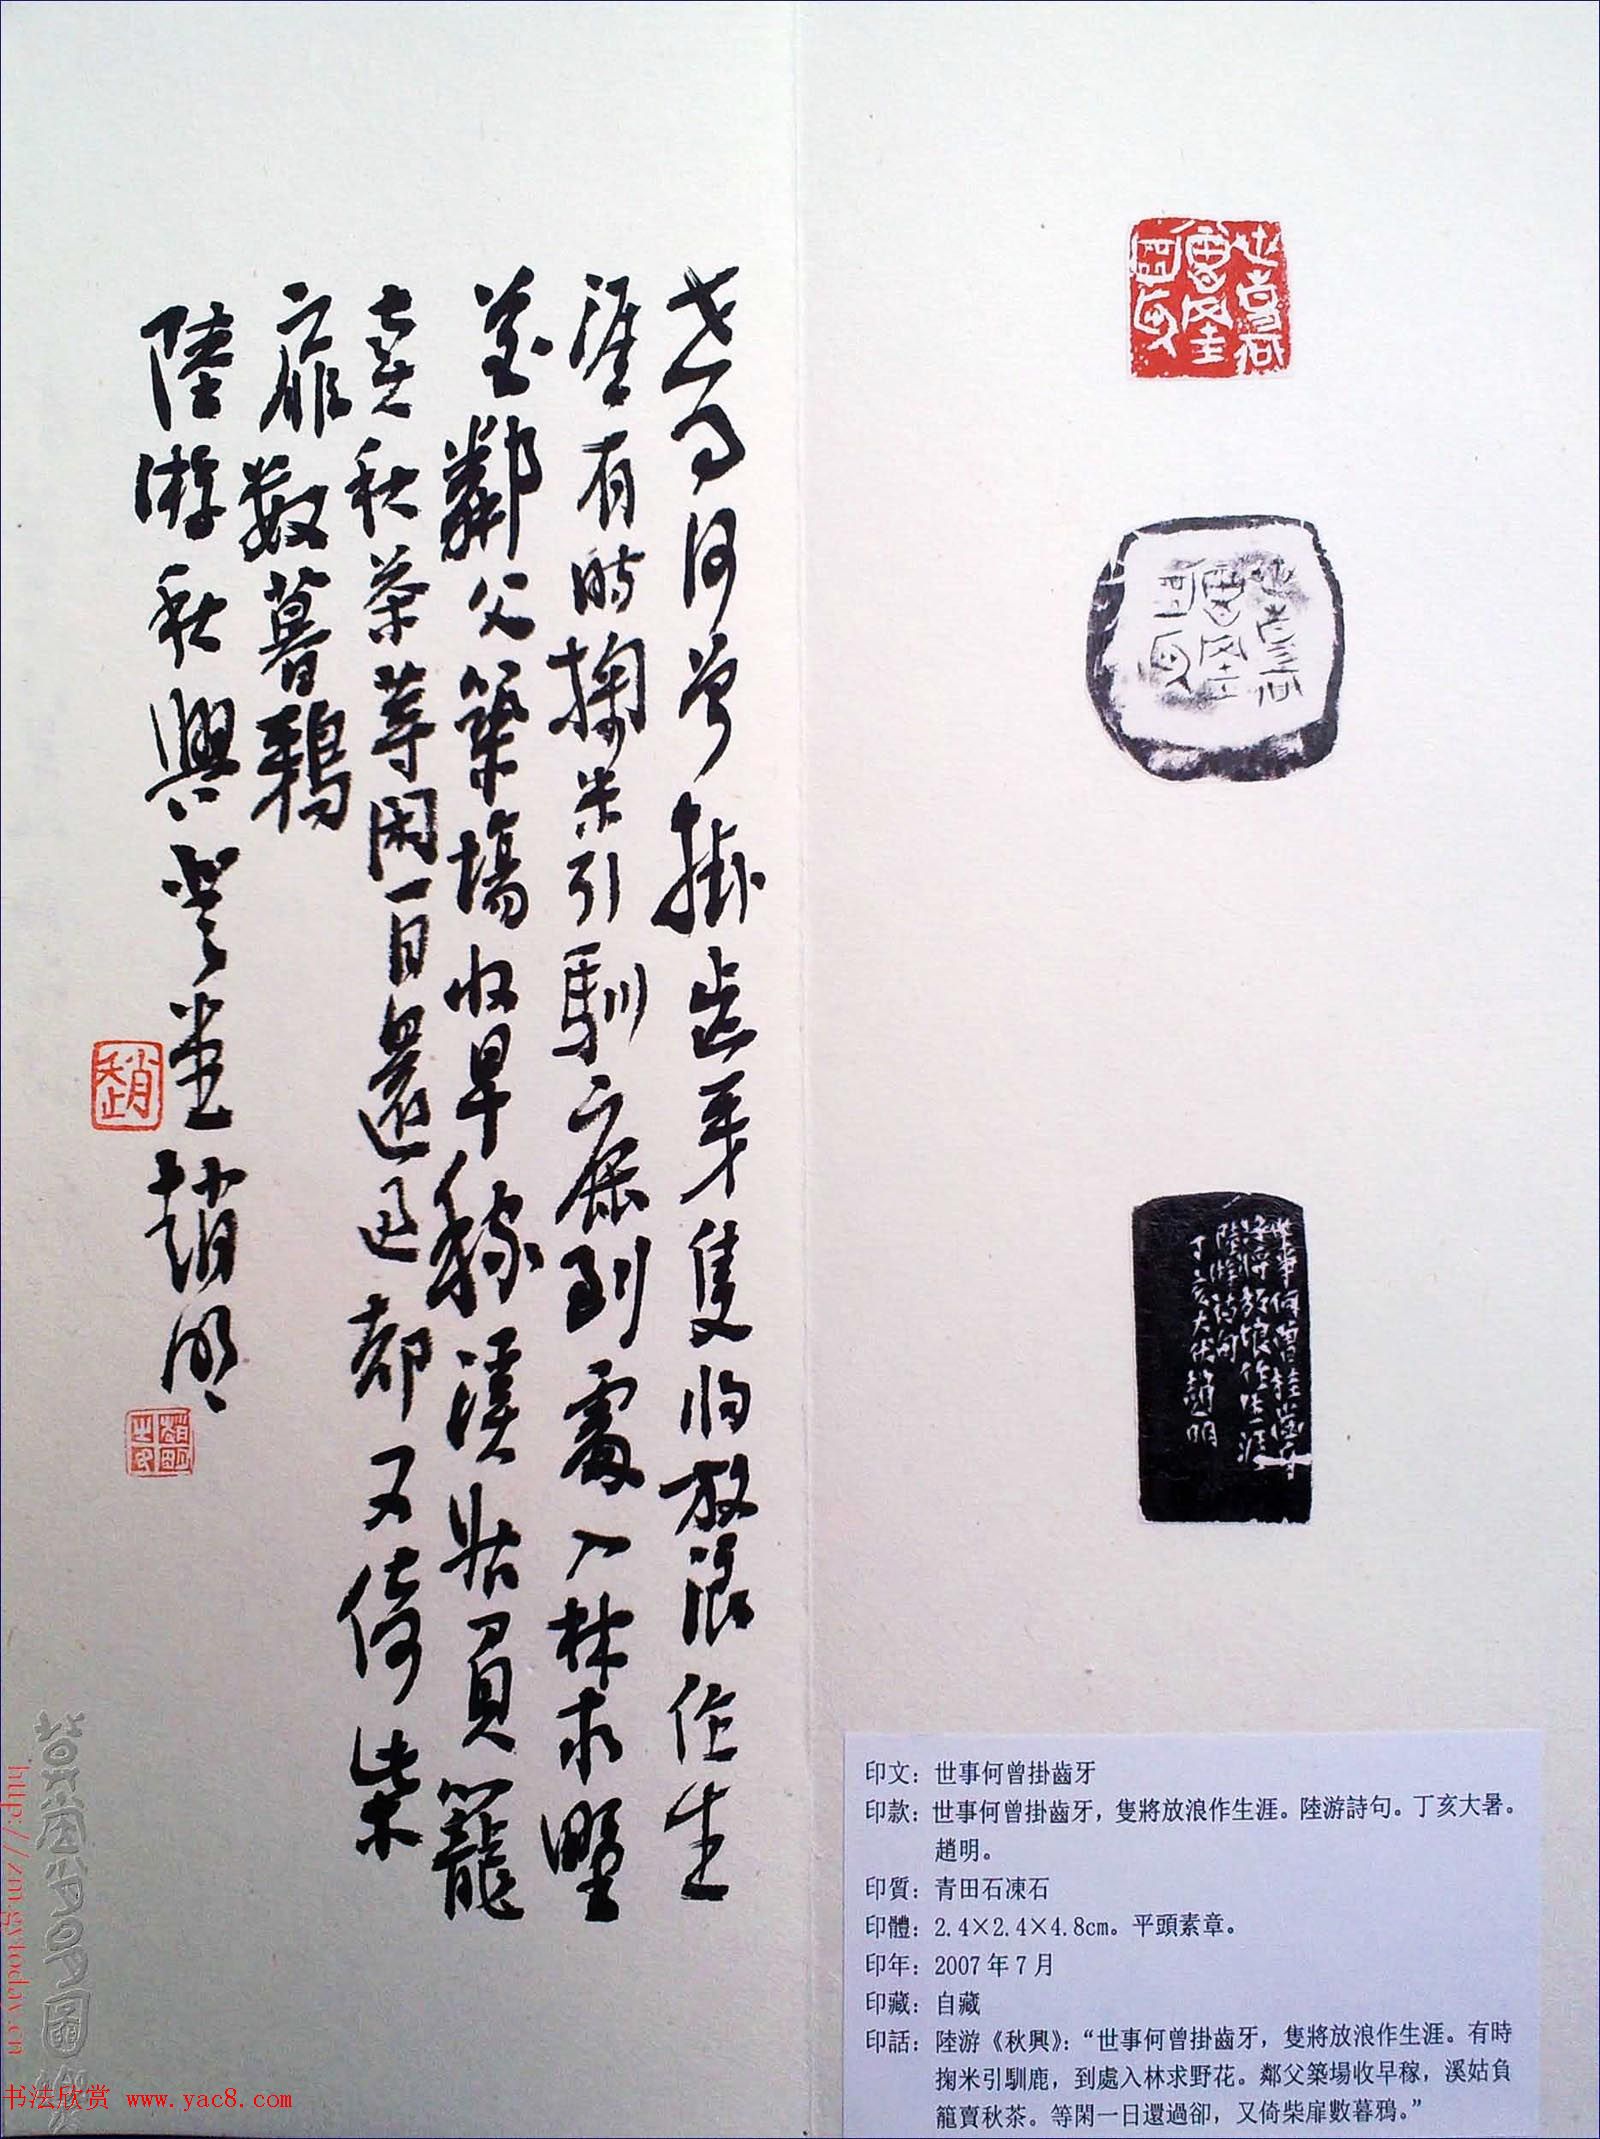 世事何曾掛齒牙隻將放浪作生
涯有時掬米引馴鹿到處入林求野
花鄰父築場收早稼溪姑負籠
賣秋茶等閑一日還過卻又倚柴
扉數暮鴉
陸游秋興
堂趙明
趙
趙明之印
世事何曾掛齒牙
世事何曾掛齒牙
隻將放浪作生涯
陸游詩句
丁亥大暑趙明
印文：世事何曾掛齒牙
印款：世事何曾掛齒牙，隻將放浪作生涯。陸游詩句。丁亥大暑。
趙明。
印質：青田石凍石
印體：2.4×2.4×4.8cm。平頭素章。
印年：2007年7月
印藏：自藏
印話：陸游《秋興》：“世事何曾掛齒牙，隻將放浪作生涯。有時
掬米引馴鹿，到處入林求野花。鄰父築場收早稼，溪姑負
籠賣秋茶。等閑一日還過卻，又倚柴扉數暮鴉。”
http://zm.gytoday.cn
书法欣赏 www.yac8.com